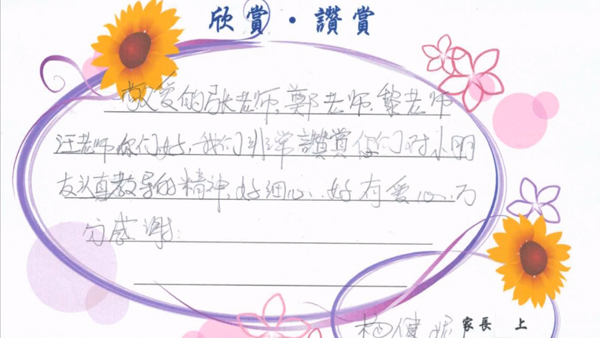 欣賞·讚賞
敬爱的张老师.鄭老师.黎老师
汪老师你们好.我们非常讚賞你们对小朋
友认真教导的精神.好细心.好有爱心.万
分感谢.
杨健 家長 上